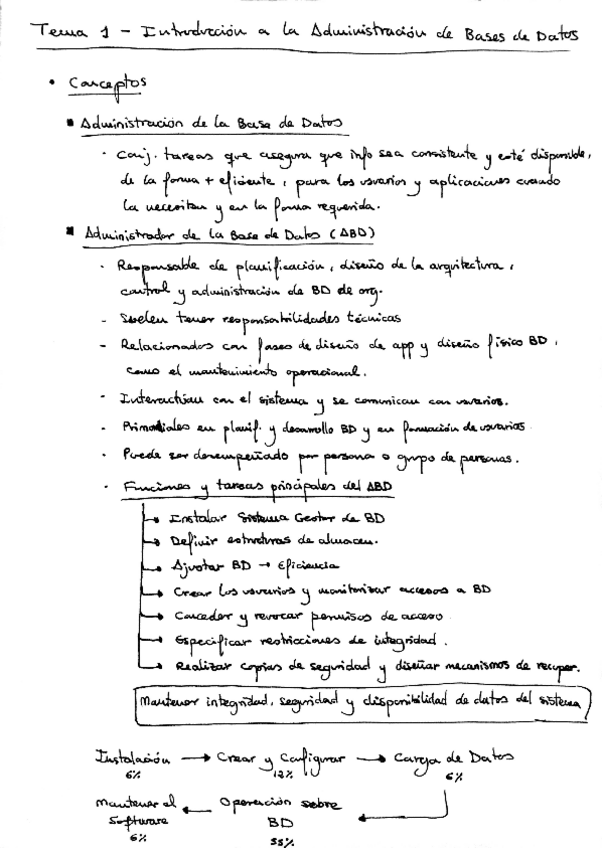 Tema 1 - Introducción a la Administración de Bases de Datos
• Conceptos
▪ Administración de la Base de Datos
· Conj. tareas que asegura que info sea consistente y esté disponible,
de la forma + eficiente, para los usuarios y aplicaciones cuando
la necesitan y en la forma requerida.
▪ Administrador de la Base de Datos (ABD)
· Responsable de planificación, diseño de la arquitectura,
control y administración de BD de org.
- Suelen tener responsabilidades técnicas
- Relacionados con fases de diseño de app y diseño físico BD,
como el mantenimiento operacional.
· Interactúan con el sistema y se comunican con usuarios.
· Primordiales en planif. y desarrollo BD y en formación de usuarios.
· Puede ser desempeñado por persona o grupo de personas.
· Funciones y tareas principales del ABD
↳ Instalar Sistema Gestor de BD
↳ Definir estructuras de almacen.
↳ Ajustar BD → Eficiencia
↳ Crear los usuarios y monitorizar accesos a BD
↳ Conceder y revocar permisos de acceso
↳ Especificar restricciones de integridad.
↳ Realizar copias de seguridad y diseñar mecanismos de recuper.
Mantener integridad, seguridad y disponibilidad de datos del sistema
Instalación → Crear y Configurar → Carga de Datos
6% 12% 6%
Mantener el ← Operación sobre
Software BD ←
6% 55%